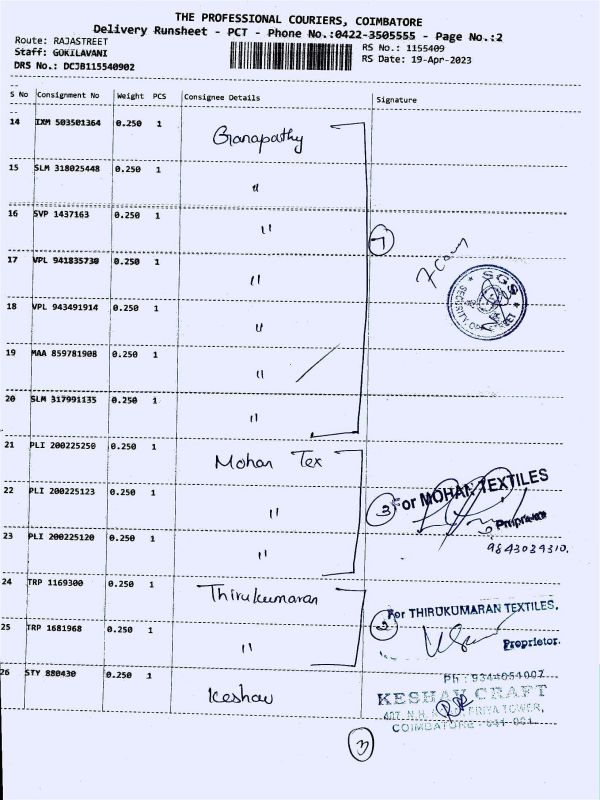 THE PROFESSIONAL COURIERS, COIMBATORE
Delivery Runsheet - PCT - Phone No.:0422-3505555 - Page No.:2
Route: RAJASTREET
RS No.: 1155409
Staff: GOKILAVANI
RS Date: 19-Apr-2023
DRS No.: DCJB115540902
S No Consignment No Weight PCS Consignee Details Signature
14 IXM 503501364 0.250 1 Ganapathy
15 SLM 318025448 0.250 1 "
16 SVP 1437163 0.250 1 "
7
17 VPL 941835730 0.250 1 "
SGS
SECURITY
18 VPL 943491914 0.250 1 "
19 MAA 859781908 0.250 1 "
20 SLM 317991135 0.250 1 "
21 PLI 200225250 0.250 1 Mohan Tex
22 PLI 200225123 0.250 1 "
3 For MOHAN TEXTILES
Proprietor
23 PLI 200225120 0.250 1 "
9843039310.
24 TRP 1169300 0.250 1 Thirukumaran
For THIRUKUMARAN TEXTILES,
25 TRP 1681968 0.250 1 "
2
Proprietor.
26 STY 880430 0.250 1 Keshav
Ph : 9344054007
KESHAV CRAFT
407, N.H. PRIYA TOWER,
COIMBATORE - 641 001.
3